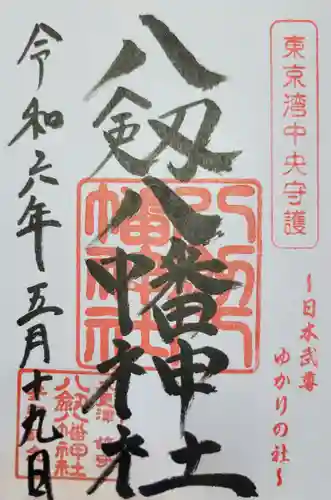 東京湾中央守護
～日本武尊
ゆかりの社～
八剱八幡神社
令和六年五月十九日
八剱八幡神社
八剱八幡神社